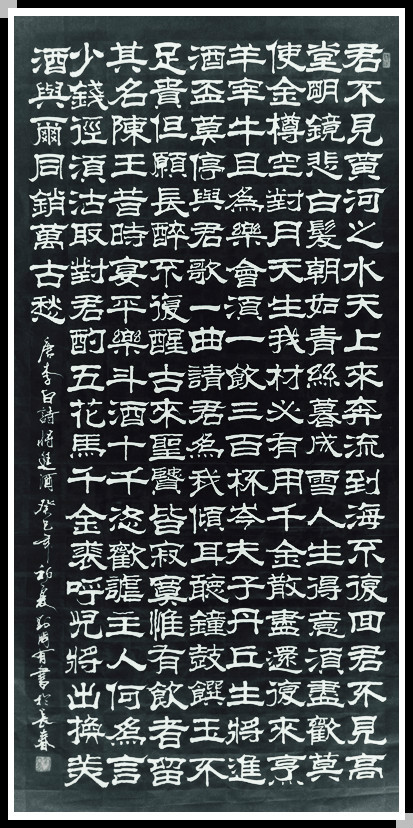 君不見黃河之水天上來奔流到海不復回君不見高
堂朙鏡悲白髮朝如青絲暮成雪人生得意須盡歡莫
使金樽空對月天生我材必有用千金散盡還復來烹
羊宰牛且為樂會須一飲三百杯岑夫子丹丘生將進
酒盃莫停與君歌一曲請君為我傾耳聽鐘鼓饌玉不
足貴但願長醉不復醒古來聖賢皆寂寞惟有飲者留
其名陳王昔時宴平樂斗酒十千恣歡謔主人何為言
少錢徑須沽取對君酌五花馬千金裘呼兒將出換美
酒與爾同銷萬古愁
唐李白詩將進酒癸巳年初夏書於長春